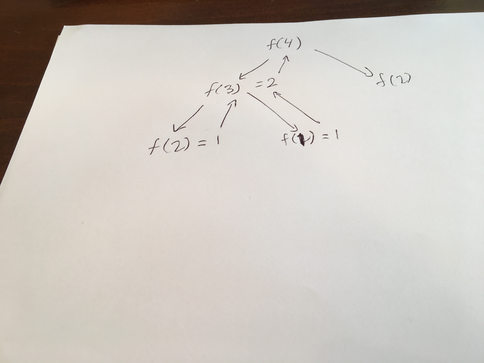 f(4)
f(3) = 2
f(2)
f(2) = 1
f(1) = 1